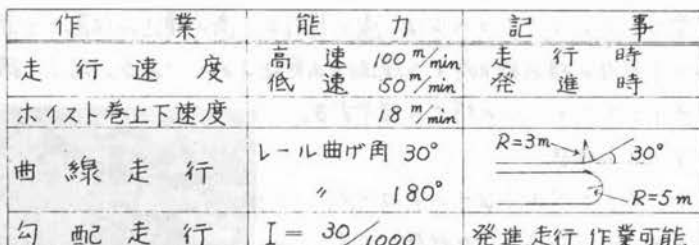 作業 能力 記事
走行速度 高速 100 m/min 走行時
低速 50 m/min 発進時
ホイスト巻上下速度 18 m/min
曲線走行 レール曲げ角 30° R=3m 30°
〃 180° R=5m
勾配走行 I=30/1000 発進走行作業可能